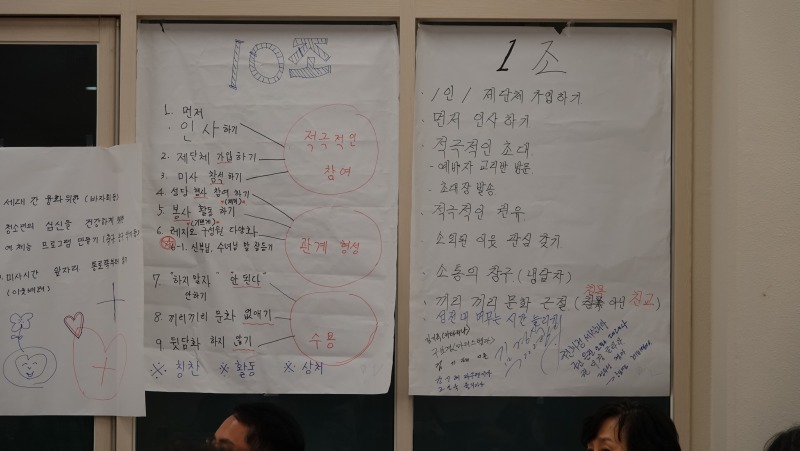 세대 간 융화 위한 (바자회등)
청소년의 심신을 건강하게 위한
예체능 프로그램 만들기
미사시간 앞자리 통로쪽부터 앉기
(이웃배려)
10조
1. 먼저
인사하기
2. 제단체 가입하기
3. 미사 참석하기
4. 성당 행사 참여하기
5. 봉사 활동하기
6. 레지오 구성원 다양화
6-1. 신부님, 수녀님 말 잘듣기
7. "하기 말자" "안 된다"
안하기
8. 끼리끼리 문화 없애기
9. 뒷담화 하지 않기
적극적인
참여
관계 형성
수용
※ 칭찬 ※ 활동 ※ 상처
1조
· 1인 1 제단체 가입하기
· 먼저 인사하기
· 적극적인 초대
- 예비자 교리반 방문
· 초대장 발송
· 적극적인 권유
· 소외된 이웃 관심 갖기
· 소통의 창구 (냉담자)
· 끼리 끼리 문화 근절 (친목 아닌 친교)
· 성전 내 머무는 시간 늘리기